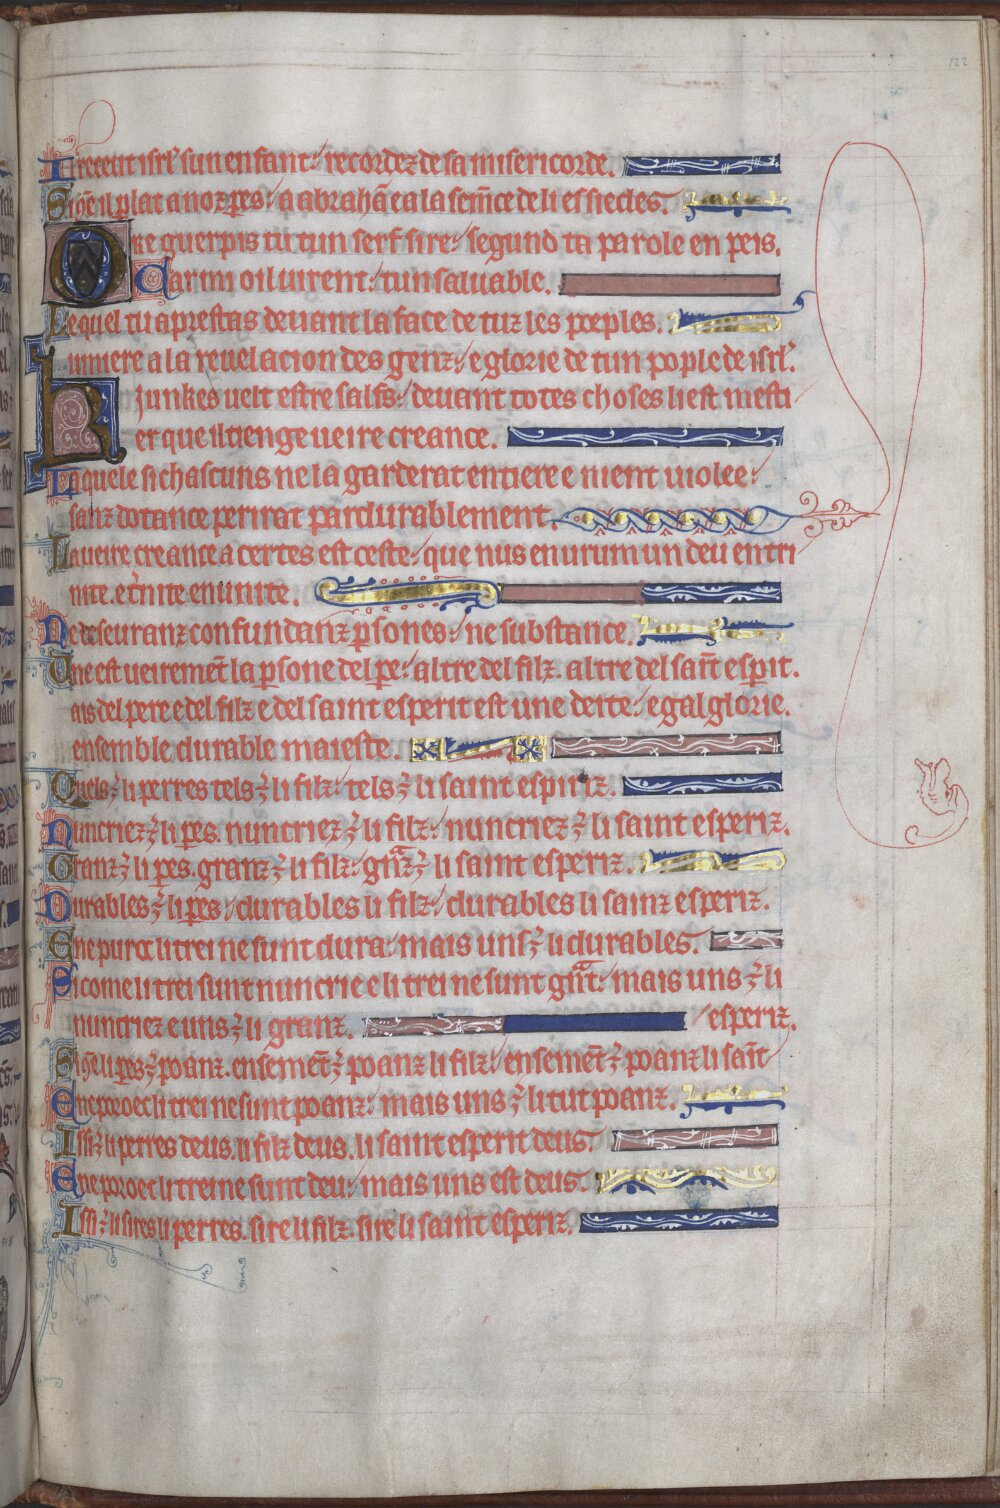 122
Il receut isrl' sun enfant: recordez de sa misericorde.
Sicũe il plat a noz peres: a abrahã e a la semẽce de li es siecles.
Ore guerpis tu tun serf sire: segund ta parole en peis.
Car mi oil uirent: tun saluable.
Lequel tu aprestas deuant la face de tuz les poeples.
Lumiere a la reuelacion des genz: e glorie de tun pople de isrl'.
Ki junkes uelt estre salfs: deuant totes choses li est mesti
er que il tienge ueire creance.
Laquele si chascuns ne la garderat entiere e nient uiolee:
sanz dotance perirat pardurablement.
La ueire creance a certes est ceste: que nus enurum un deu en tri
nite. e t'nite en unite.
Ne deseuranz confundanz p̱sones: ne substance.
Une est ueiremẽt la p̱sone del pe̱: altre del filz. altre del saĩt esp̱it.
ais del pere e del filz e del saint esperit est une deite: egal glorie.
ensemble durable maieste.
Quels ÷ li perres tels ÷ li filz: tels ÷ li saint espiriz.
Nuncriez ÷ li pes. nuncriez ÷ li filz: nuncriez ÷ li saint esperiz.
Granz ÷ li pes. granz ÷ li filz: gñz ÷ li saint esperiz.
Durables ÷ li pes: durables li filz: durables li sainz esperiz.
E nepuroc li trei ne sunt dura: mais uns ÷ li durables.
Sicome li trei sunt nuncrie e li trei ne sunt gñt: mais uns ÷ li
nuncriez e uns ÷ li granz. esperiz.
Sicũe li pes ÷ poanz. ensemẽt ÷ poanz li filz: ensemẽt ÷ poanz li saĩt
E neproec li trei ne sunt poanz: mais uns ÷ li tut poanz.
Issi ÷ li perres deus. li filz deus. li saint esperit deus.
E neproec li trei ne sunt deu: mais uns est deus.
Issi ÷ li sires li perres. sire li filz. sire li saint esperiz.